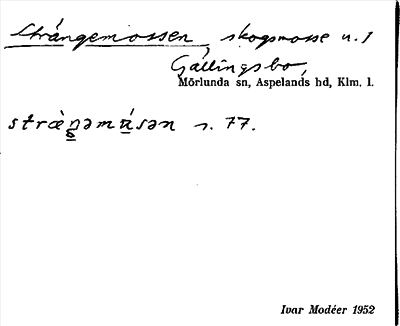 Strångemossen, skogsmosse u. 1
Gällingsbo,
Mörlunda sn, Aspelands hd, Klm. l.
s. 77.
Ivar Modéer 1952